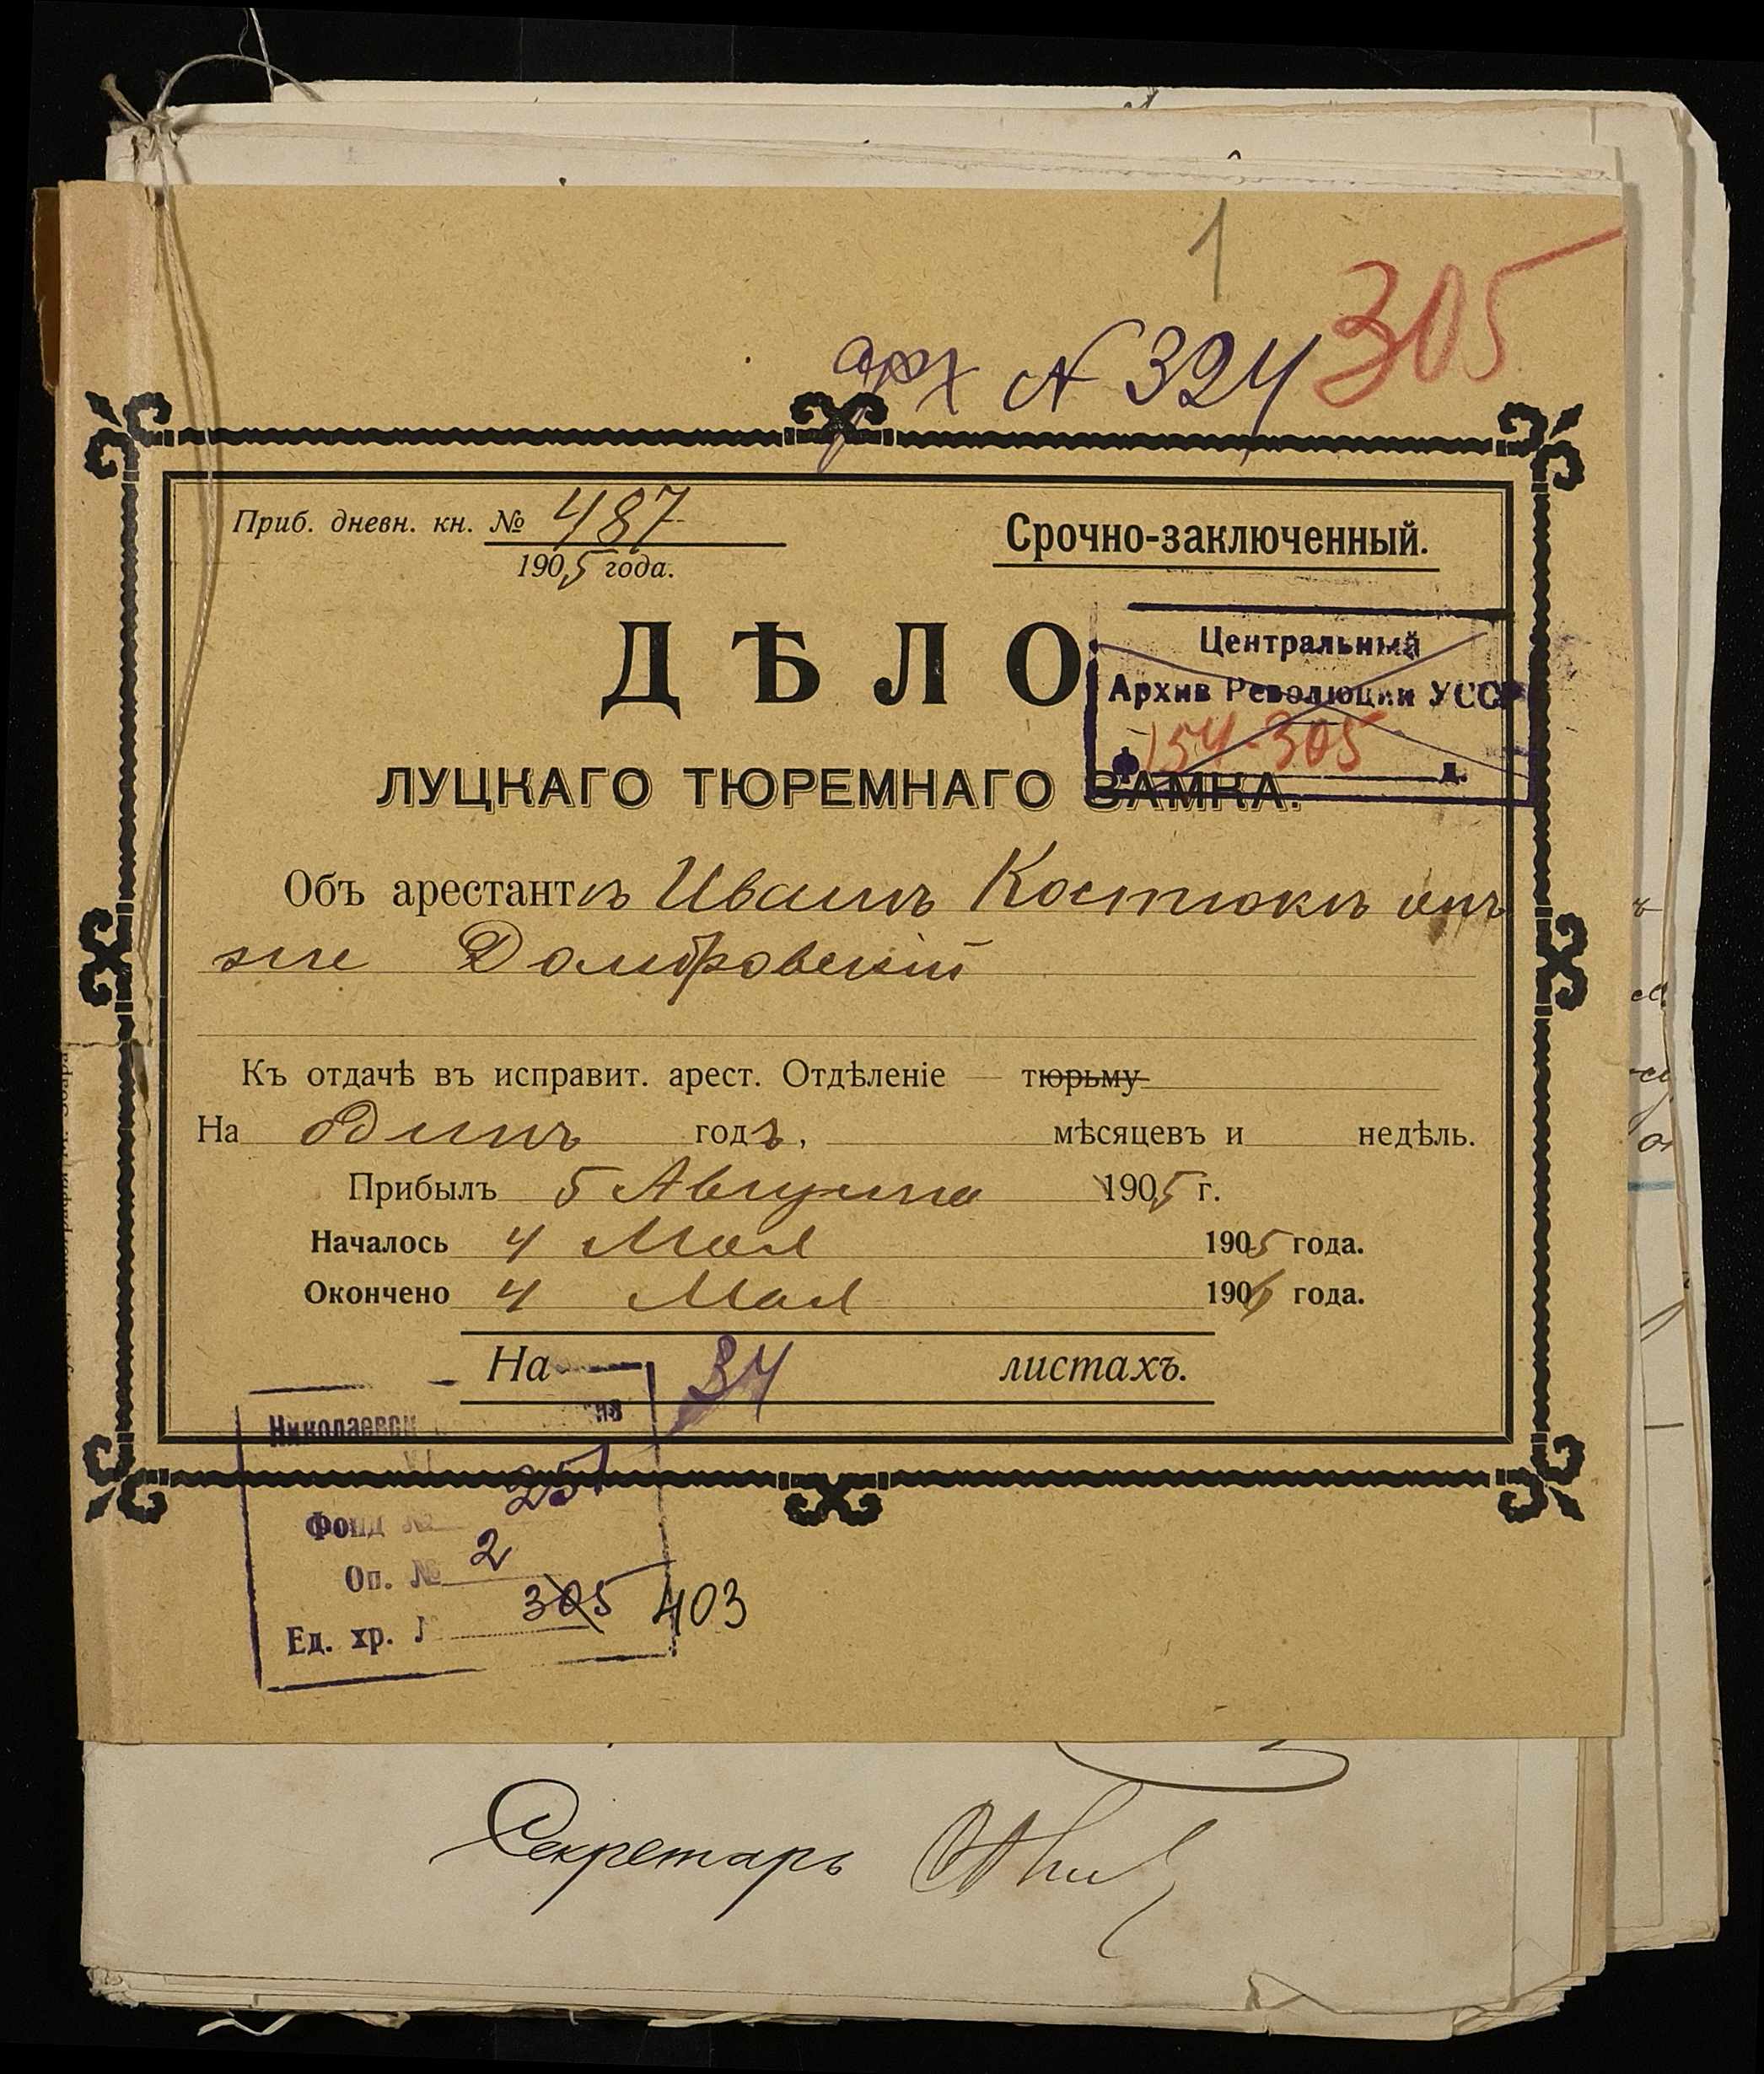 1
305
арх N 324
Приб. дневн. кн. № 487
1905 года.
Срочно-заключенный.
ДѢЛО
Центральный
Архив Революции УССР
Ф 154-305 д.
ЛУЦКАГО ТЮРЕМНАГО ЗАМКА.
Объ арестантѣ Иванѣ Костюкѣ онъ
же Домбровскій
Къ отдачѣ въ исправит. арест. Отдѣленіе тюрьму
На одинъ годъ, мѣсяцевъ и недѣль.
Прибылъ 5 Августа 1905 г.
Началось 4 Мая 1905 года.
Окончено 4 Мая 1906 года.
На 34 листахъ.
Николаевск
Фонд № 251
Оп. № 2
Ед. хр. 305 403
Секретарь